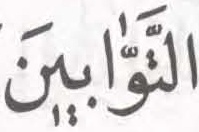 التَّوَّابِينَ